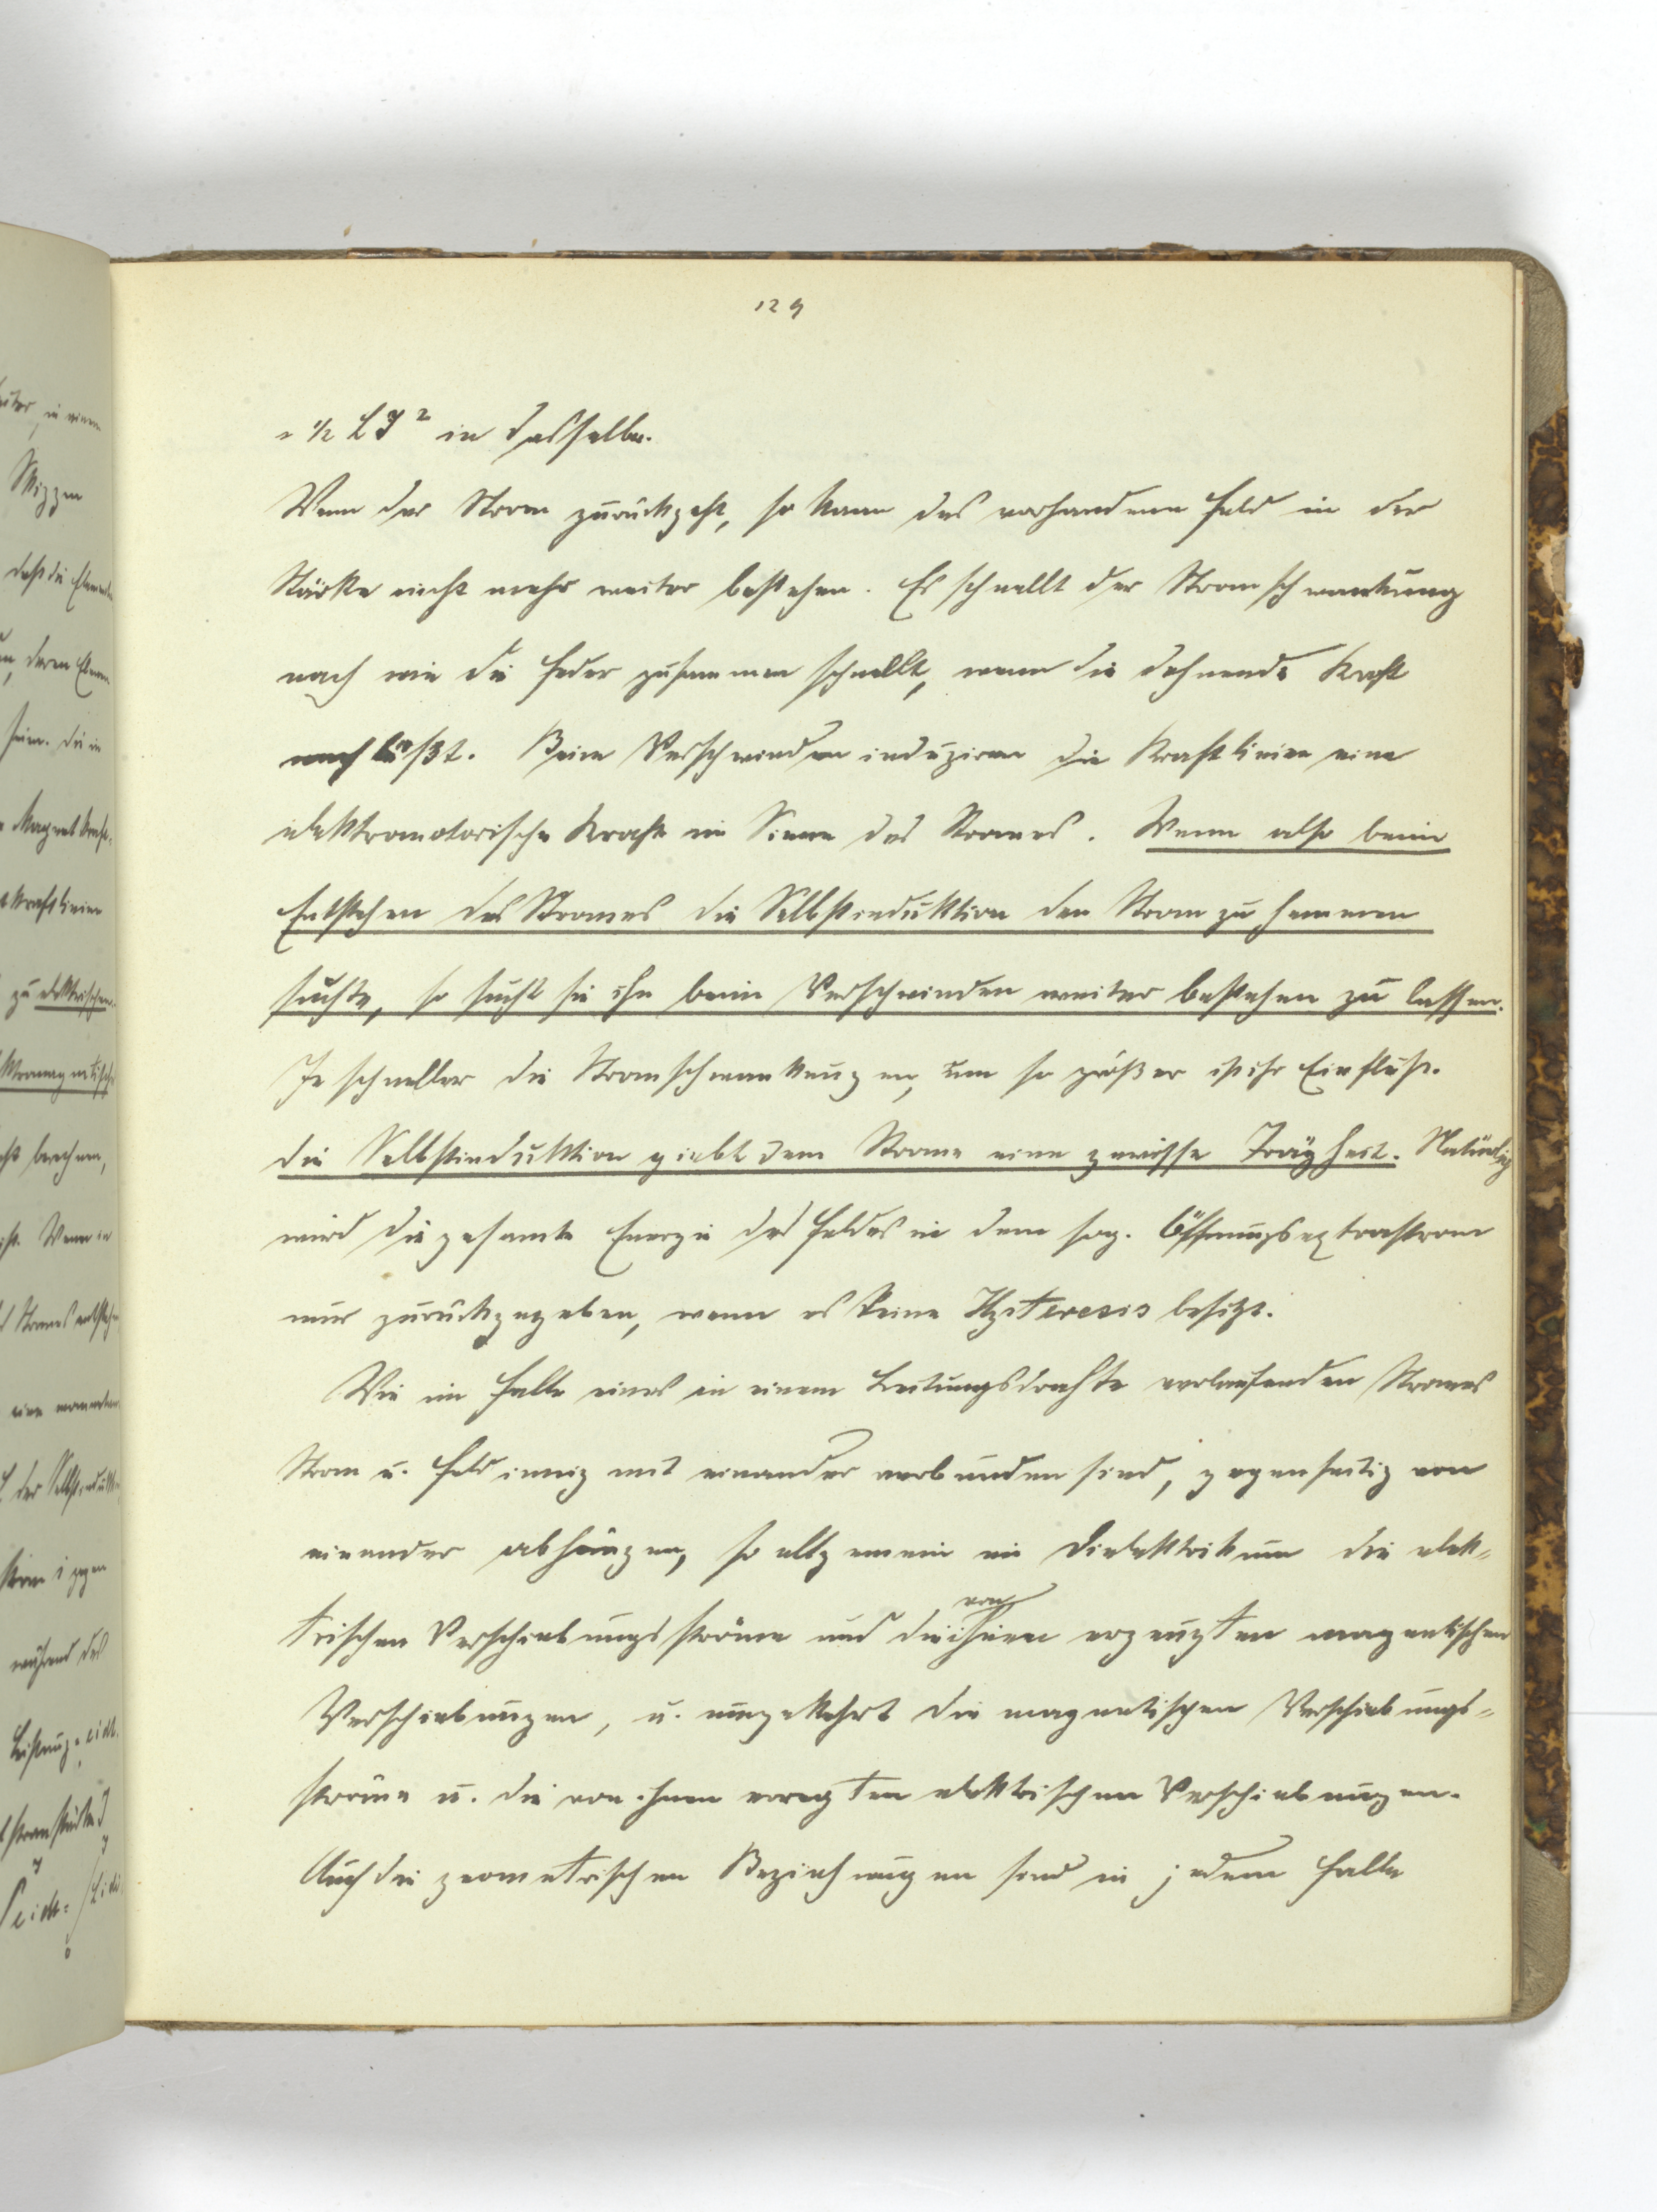 129
= 1/2 L J² in dasselbe.
Wenn der Strom zurückgeht, so kann das vorhandene Feld in der
Stärke nicht mehr weiter bestehen. Es schnellt der Stromschwankung
nach wie die Feder zusammen schnellt, wenn die dehnende Kraft
nachläßt. Beim Verschwinden induziren die Kraftlinien eine
elektromotorische Kraft im Sinne des Stromes. Wenn also beim
Entstehen des Stromes die Selbstinduktion den Strom zu hemmen
suchte, so sucht sie ihn beim Verschwinden weiter bestehen zu lassen.
Je schneller die Stromschwankungen, um so größer ist ihr Einfluß.
die Selbstinduktion giebt dem Strome eine gewisse Trägheit. Natürlich
wird die gesamte Energie des Feldes in dem sog. Öffnungsextrastrom
nur zurückgegeben, wenn es keine Hysteresis besitzt.
Wie im Falle eines in einem Leitungsdrahte verlaufenden Stromes
Strom u. Feld innig mit einander verbunden sind, gegenseitig von
einander abhängen, so allgemein im Dielektrikum die elek-
trischen Verschiebungsströme und die von ihnen erzeugten magnetischen
Verschiebungen, u. umgekehrt die magnetischen Verschiebungs-
ströme u. die von ihnen erregten elektrischen Verschiebungen.
Auch die geometrischen Beziehungen sind in jedem Falle